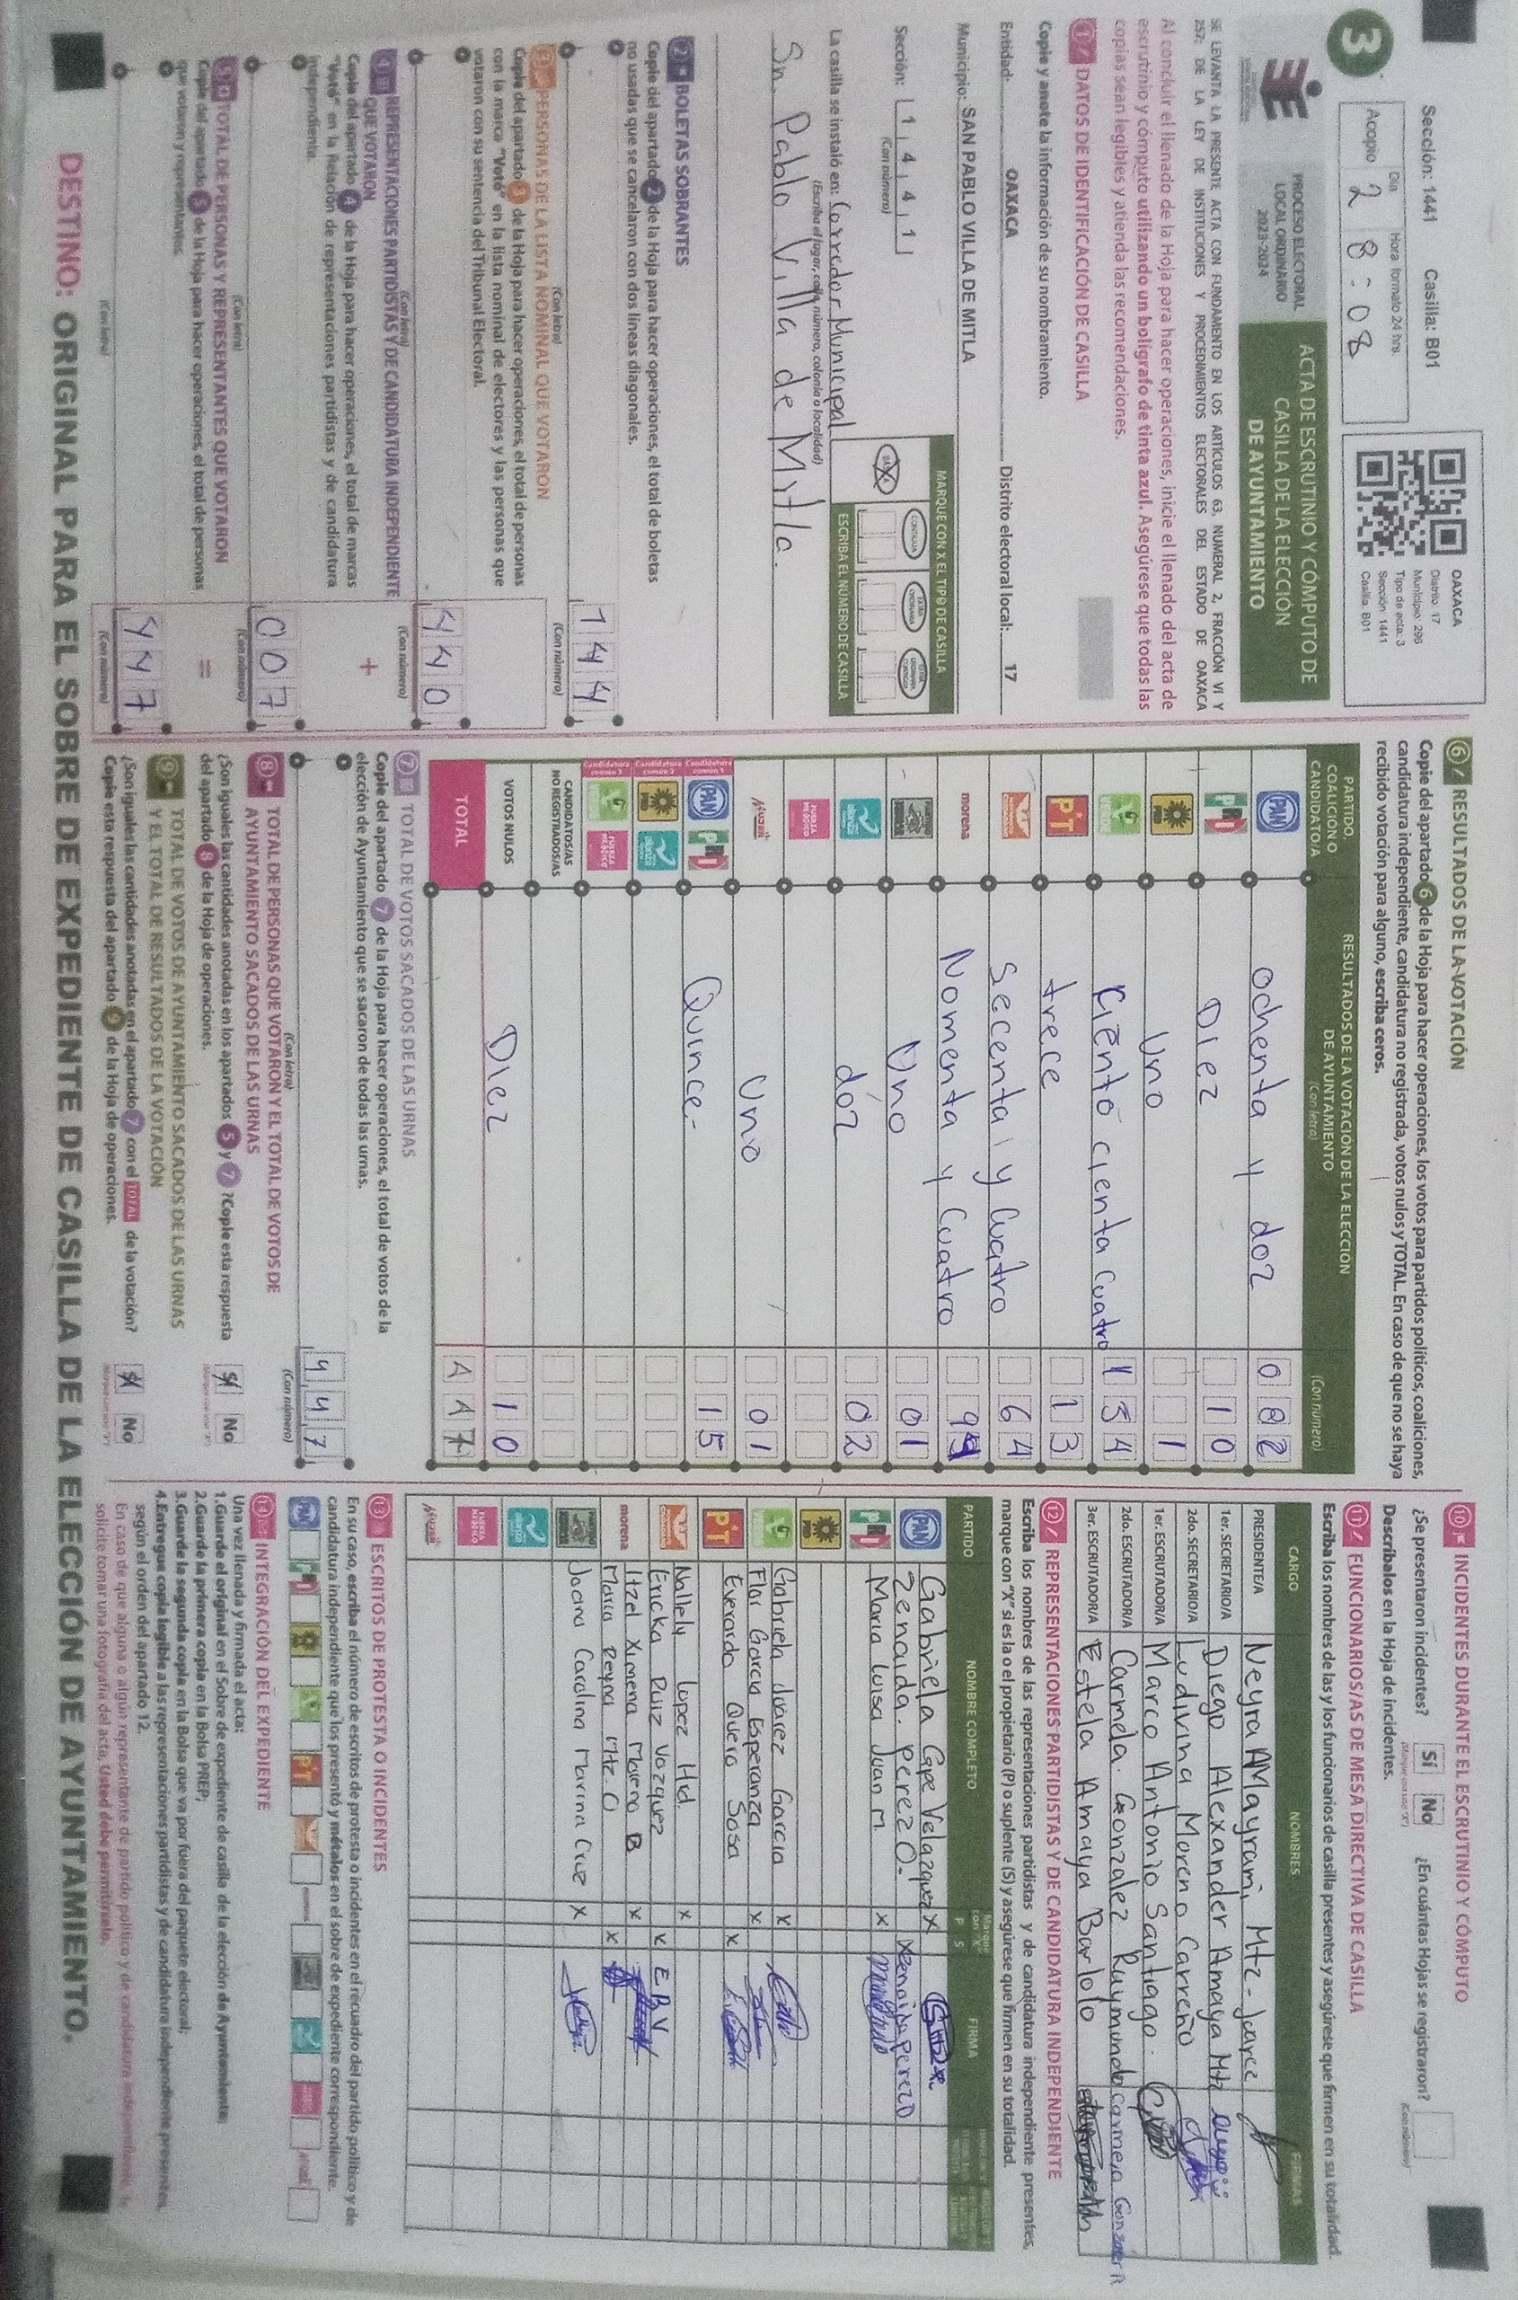 Sección: 1441 Casilla: B01
3
Día Hora formato 24 hrs.
Acopio 2 8:08
OAXACA
Distrito 17
Municipio: 296
Tipo de acta: 3
Sección 1441
Casilla. B01
PROCESO ELECTORAL
LOCAL ORDINARIO
2023-2024
ACTA DE ESCRUTINIO Y CÓMPUTO DE
CASILLA DE LA ELECCIÓN
DE AYUNTAMIENTO
SE LEVANTA LA PRESENTE ACTA CON FUNDAMENTO EN LOS ARTÍCULOS 63, NUMERAL 2, FRACCIÓN VI Y
257; DE LA LEY DE INSTITUCIONES Y PROCEDIMIENTOS ELECTORALES DEL ESTADO DE OAXACA
Al concluir el llenado de la Hoja para hacer operaciones, inicie el llenado del acta de
escrutinio y cómputo utilizando un bolígrafo de tinta azul. Asegúrese que todas las
copias sean legibles y atienda las recomendaciones.
1 DATOS DE IDENTIFICACIÓN DE CASILLA
Copie y anote la información de su nombramiento.
Entidad: OAXACA Distrito electoral local: 17
Municipio: SAN PABLO VILLA DE MITLA
Sección: 1 4 4 1
(Con número)
MARQUE CON X EL TIPO DE CASILLA
ESCRIBA EL NÚMERO DE CASILLA
La casilla se instaló en: Corredor Municipal
(Escriba el lugar, calle, número, colonia o localidad)
Sn. Pablo Villa de Mitla.
2 BOLETAS SOBRANTES
Copie del apartado 2 de la Hoja para hacer operaciones, el total de boletas
no usadas que se cancelaron con dos líneas diagonales.
(Con letra) (Con número)
3 PERSONAS DE LA LISTA NOMINAL QUE VOTARON
Copie del apartado 3 de la Hoja para hacer operaciones, el total de personas
con la marca "Votó" en la lista nominal de electores y las personas que
votaron con su sentencia del Tribunal Electoral.
440
(Con letra) (Con número)
4 REPRESENTACIONES PARTIDISTAS Y DE CANDIDATURA INDEPENDIENTE
QUE VOTARON
Copie del apartado 4 de la Hoja para hacer operaciones, el total de marcas
"Votó" en la Relación de representaciones partidistas y de candidatura
independiente.
+
007
(Con letra) (Con número)
5 TOTAL DE PERSONAS Y REPRESENTANTES QUE VOTARON
Copie del apartado 5 de la Hoja para hacer operaciones, el total de personas
que votaron y representantes.
=
447
(Con letra) (Con número)
6 RESULTADOS DE LA VOTACIÓN
Copie del apartado 6 de la Hoja para hacer operaciones, los votos para partidos políticos, coaliciones,
candidatura independiente, candidatura no registrada, votos nulos y TOTAL. En caso de que no se haya
recibido votación para alguno, escriba ceros.
PARTIDO,
COALICIÓN O
CANDIDATO/A
RESULTADOS DE LA VOTACIÓN DE LA ELECCIÓN
DE AYUNTAMIENTO
(Con letra) (Con número)
PAN ochenta y doz 082
PRI Diez 10
PRD Uno 1
ciento cienta cuatro
PT trece 13
secenta y cuatro 64
morena Nomenta y cuatro
Uno 01
doz 02
FUERZA MÉXICO
Uno 01
PAN PRI Quince- 15
CANDIDATOS/AS
NO REGISTRADOS/AS
VOTOS NULOS Diez 10
TOTAL 447
7 TOTAL DE VOTOS SACADOS DE LAS URNAS
Copie del apartado 7 de la Hoja para hacer operaciones, el total de votos de la
elección de Ayuntamiento que se sacaron de todas las urnas.
447
(Con letra) (Con número)
8 TOTAL DE PERSONAS QUE VOTARON Y EL TOTAL DE VOTOS DE
AYUNTAMIENTO SACADOS DE LAS URNAS
¿Son iguales las cantidades anotadas en los apartados 5 y 7 ?Copie esta respuesta
del apartado 8 de la Hoja de operaciones.
Sí No
9 TOTAL DE VOTOS DE AYUNTAMIENTO SACADOS DE LAS URNAS
Y EL TOTAL DE RESULTADOS DE LA VOTACIÓN
¿Son iguales las cantidades anotadas en el apartado 7 con el TOTAL de la votación?
Copie esta respuesta del apartado 9 de la Hoja de operaciones.
Sí No
10 INCIDENTES DURANTE EL ESCRUTINIO Y CÓMPUTO
¿Se presentaron incidentes? Sí No ¿En cuántas Hojas se registraron?
Descríbalos en la Hoja de incidentes.
11 FUNCIONARIOS/AS DE MESA DIRECTIVA DE CASILLA
Escriba los nombres de las y los funcionarios de casilla presentes y asegúrese que firmen en su totalidad.
CARGO NOMBRES FIRMAS
PRESIDENTE/A Neyra Mayrami Mtz- Juarez
1er. SECRETARIO/A Diego Alexander Amaya Mtz
2do. SECRETARIO/A Ludivina Moreno Carreño
1er. ESCRUTADOR/A Marco Antonio Santiago.
2do. ESCRUTADOR/A Carmela. Gonzalez Raymundo
3er. ESCRUTADOR/A Estela Amaya Bartolo
12 REPRESENTACIONES PARTIDISTAS Y DE CANDIDATURA INDEPENDIENTE
Escriba los nombres de las representaciones partidistas y de candidatura independiente presentes,
marque con "X" si es la o el propietario (P) o suplente (S) y asegúrese que firmen en su totalidad.
PARTIDO NOMBRE COMPLETO Marque con "X" P S FIRMA
PAN Gabriela Cope Velazquez X
Zenaida. perez O. X Zenaida perezO
PRI Maria luisa Juan M X
Gabriela Juárez Garcia X
Flor Garcia Esperanza X
PT Everardo Quero Sosa X
Nallely lopez Hd. X
Ericka Ruiz Vazquez X E.R.V
morena Itzel Ximena Moreno B X
Maria Reyna Mtz. O X
Joana Carolina Marina Cruz X
13 ESCRITOS DE PROTESTA O INCIDENTES
En su caso, escriba el número de escritos de protesta o incidentes en el recuadro del partido político y de
candidatura independiente que los presentó y métalos en el sobre de expediente correspondiente.
14 INTEGRACIÓN DEL EXPEDIENTE
Una vez llenada y firmada el acta:
1.Guarde el original en el Sobre de expediente de casilla de la elección de Ayuntamiento;
2.Guarde la primera copia en la Bolsa PREP;
3.Guarde la segunda copia en la Bolsa que va por fuera del paquete electoral;
4.Entregue copia legible a las representaciones partidistas y de candidatura independiente presentes,
según el orden del apartado 12.
En caso de que alguna o algún representante de partido político y de candidatura independiente, le
solicite tomar una fotografía del acta, Usted debe permitírselo.
DESTINO: ORIGINAL PARA EL SOBRE DE EXPEDIENTE DE CASILLA DE LA ELECCIÓN DE AYUNTAMIENTO.